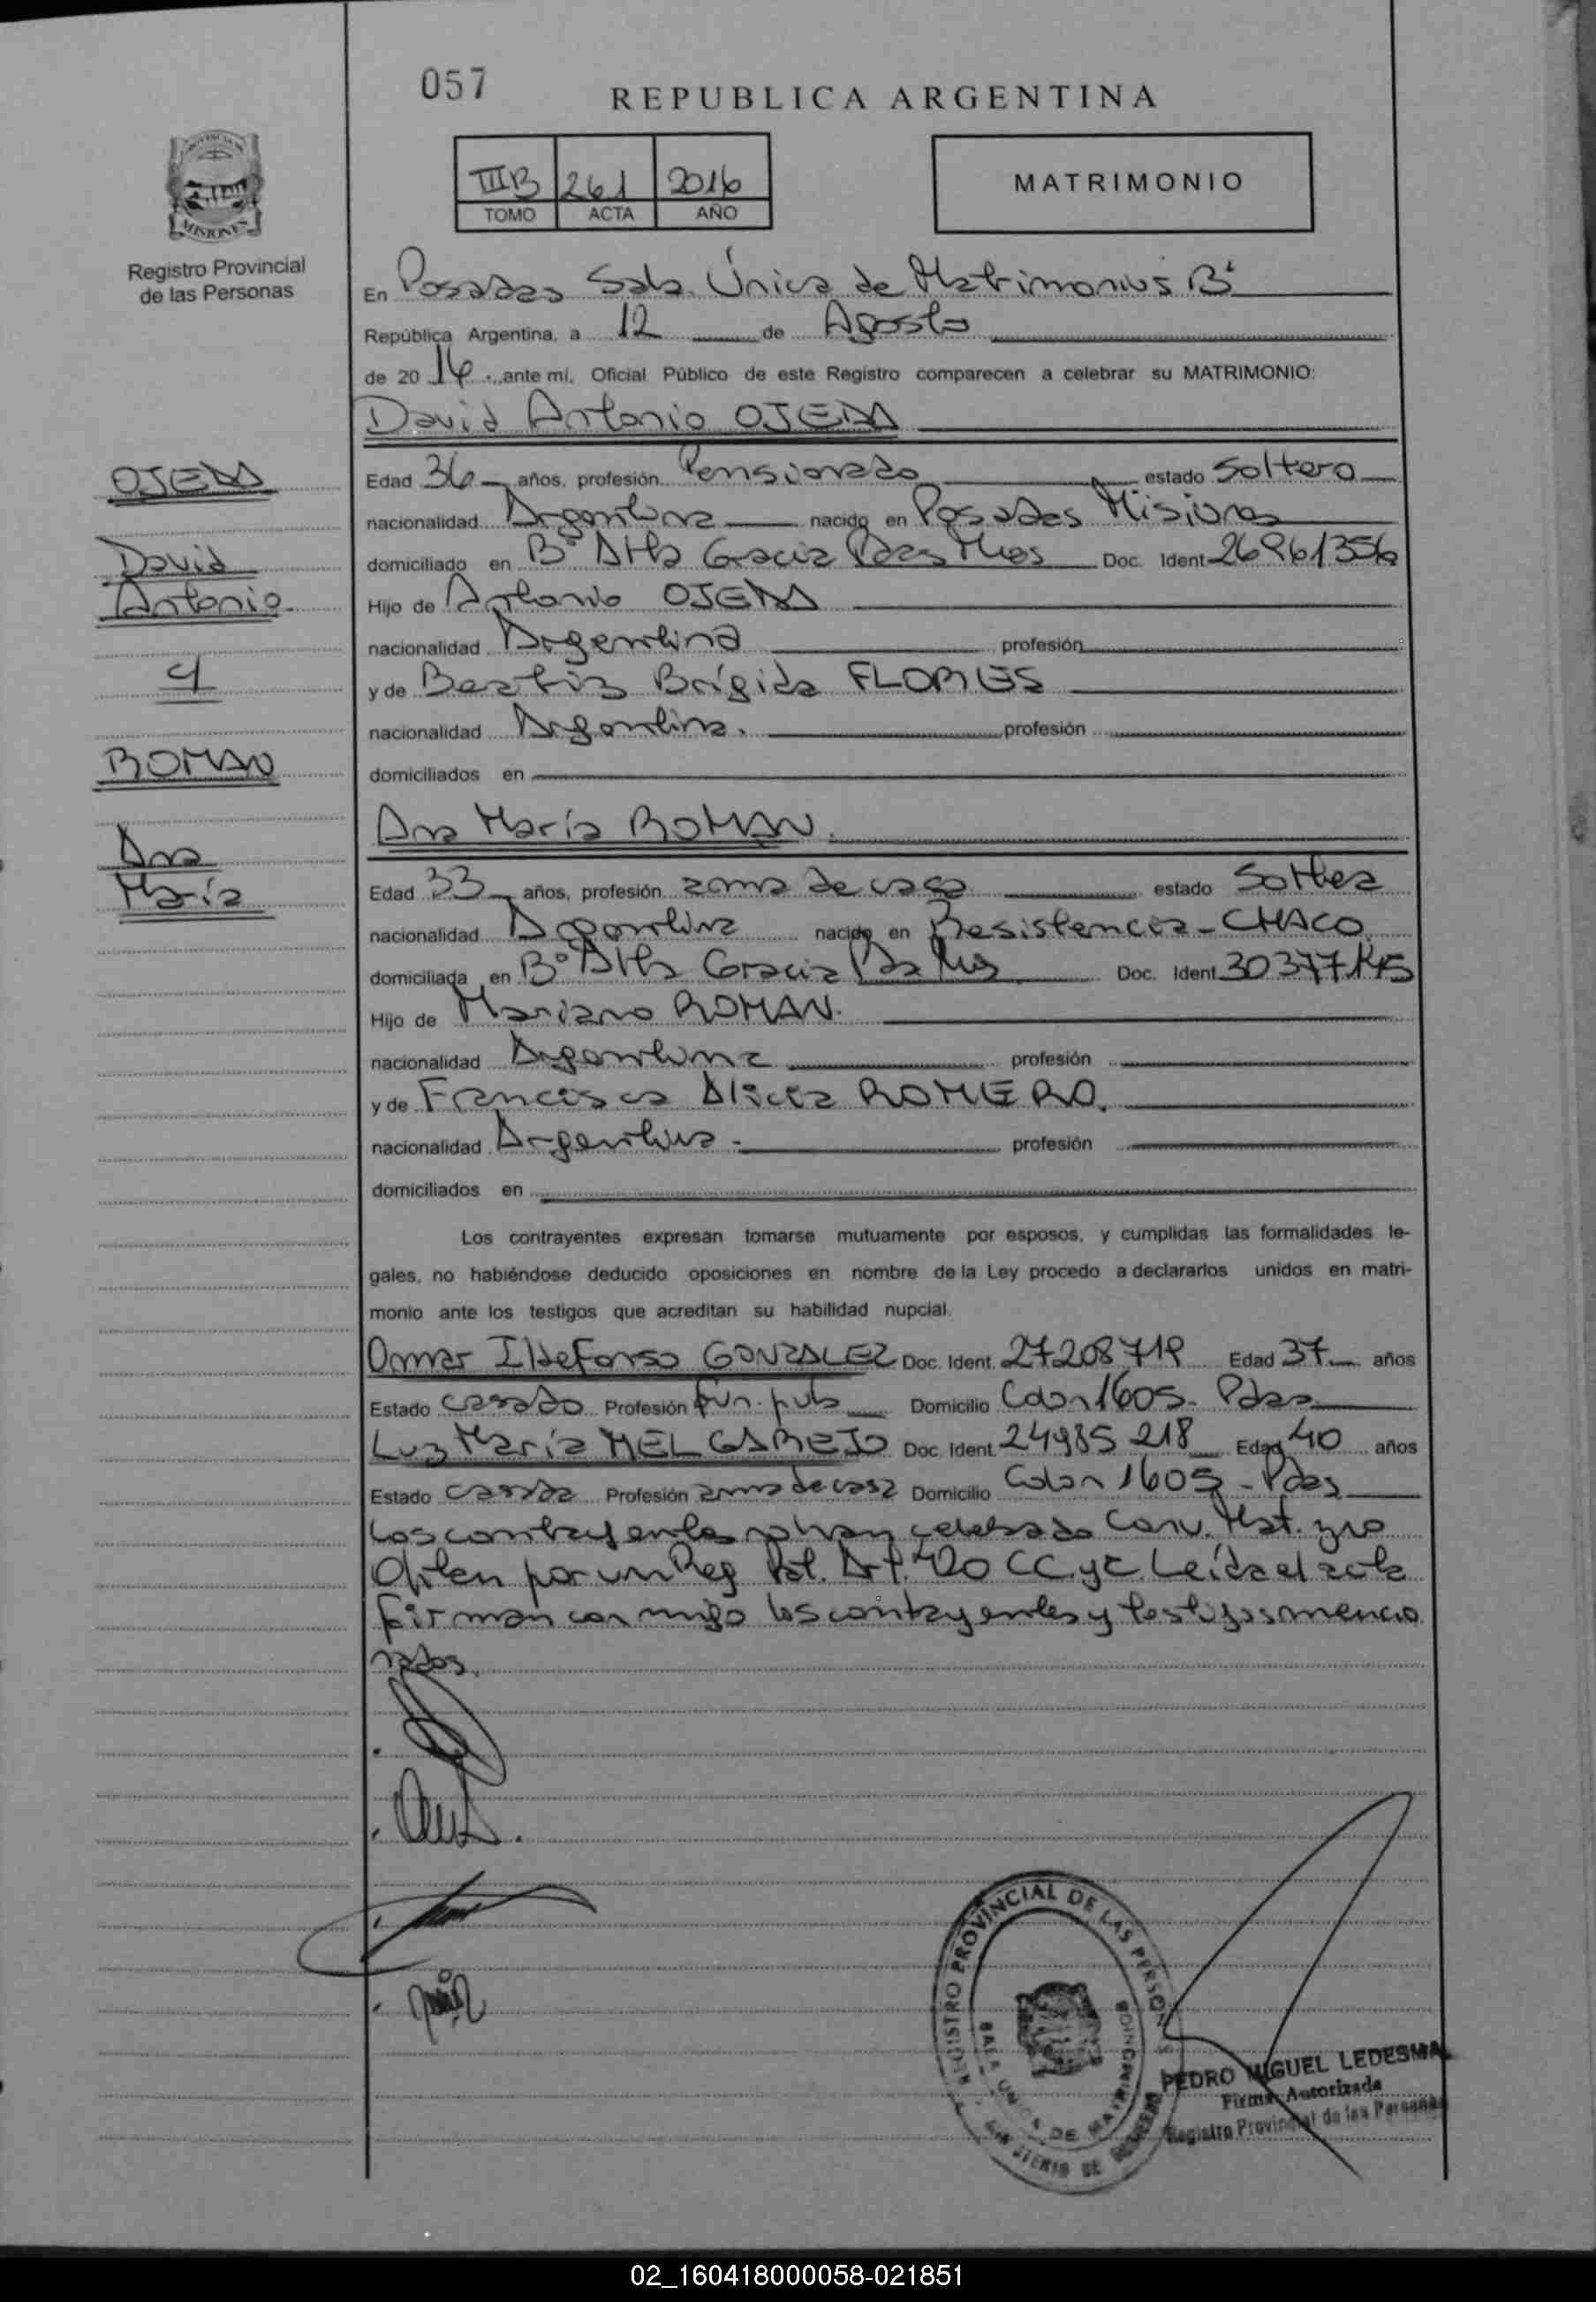 057
REPUBLICA ARGENTINA
IIIB 261 2016
TOMO ACTA AÑO
MATRIMONIO
MISIONES
Registro Provincial
de las Personas
En Posadas Sala Única de Matrimonios B´
República Argentina, a 12 de Agosto
de 20 16 ante mi, Oficial Público de este Registro comparecen a celebrar su MATRIMONIO:
David Antonio OJEDA
OJEDA
David
Antonio
y
ROMAN
Ana
María
Edad 36 años, profesión Pensionado estado Soltero
nacionalidad Argentina nacido en Posadas Misiones
domiciliado en B° Alta Gracia Pdas Mnes Doc. Ident 26961356
Hijo de Antonio OJEDA
nacionalidad Argentina profesión
y de Beatriz Brígida FLORES
nacionalidad Argentina. profesión
domiciliados en
Ana María ROMAN.
Edad 33 años, profesión ama de casa estado Soltera
nacionalidad Argentina nacido en Resistencia - CHACO
domiciliada en B° Alta Gracia Pdas Mnes Doc. Ident 30377145
Hijo de Mariano ROMAN.
nacionalidad Argentina profesión
y de Francisca Alicia ROMERO.
nacionalidad Argentina - profesión
domiciliados en
Los contrayentes expresan tomarse mutuamente por esposos, y cumplidas las formalidades le-
gales, no habiéndose deducido oposiciones en nombre de la Ley procedo a declararlos unidos en matri-
monio ante los testigos que acreditan su habilidad nupcial.
Omar Ildefonso GONZALEZ Doc. Ident. 27208719 Edad 37 años
Estado casado Profesión fun. pub Domicilio Colon 1605 - Pdas
Luz María MELGAREJO Doc. Ident 24985218 Edad 40 años
Estado casada Profesión ama de casa Domicilio Colon 1605 - Pdas
Los contrayentes no han celebrado Conv. Mat. y no
Opten por un Reg Pat. Art. 420 CC.yC. Leída el acta
firman conmigo los contrayentes y testigos mencio
nados.
REGISTRO PROVINCIAL DE LAS PERSONAS
SALA UNICA DE MATRIMONIOS
PEDRO MIGUEL LEDESMA
Firma Autorizada
Registro Provincial de las Personas
02_160418000058-021851